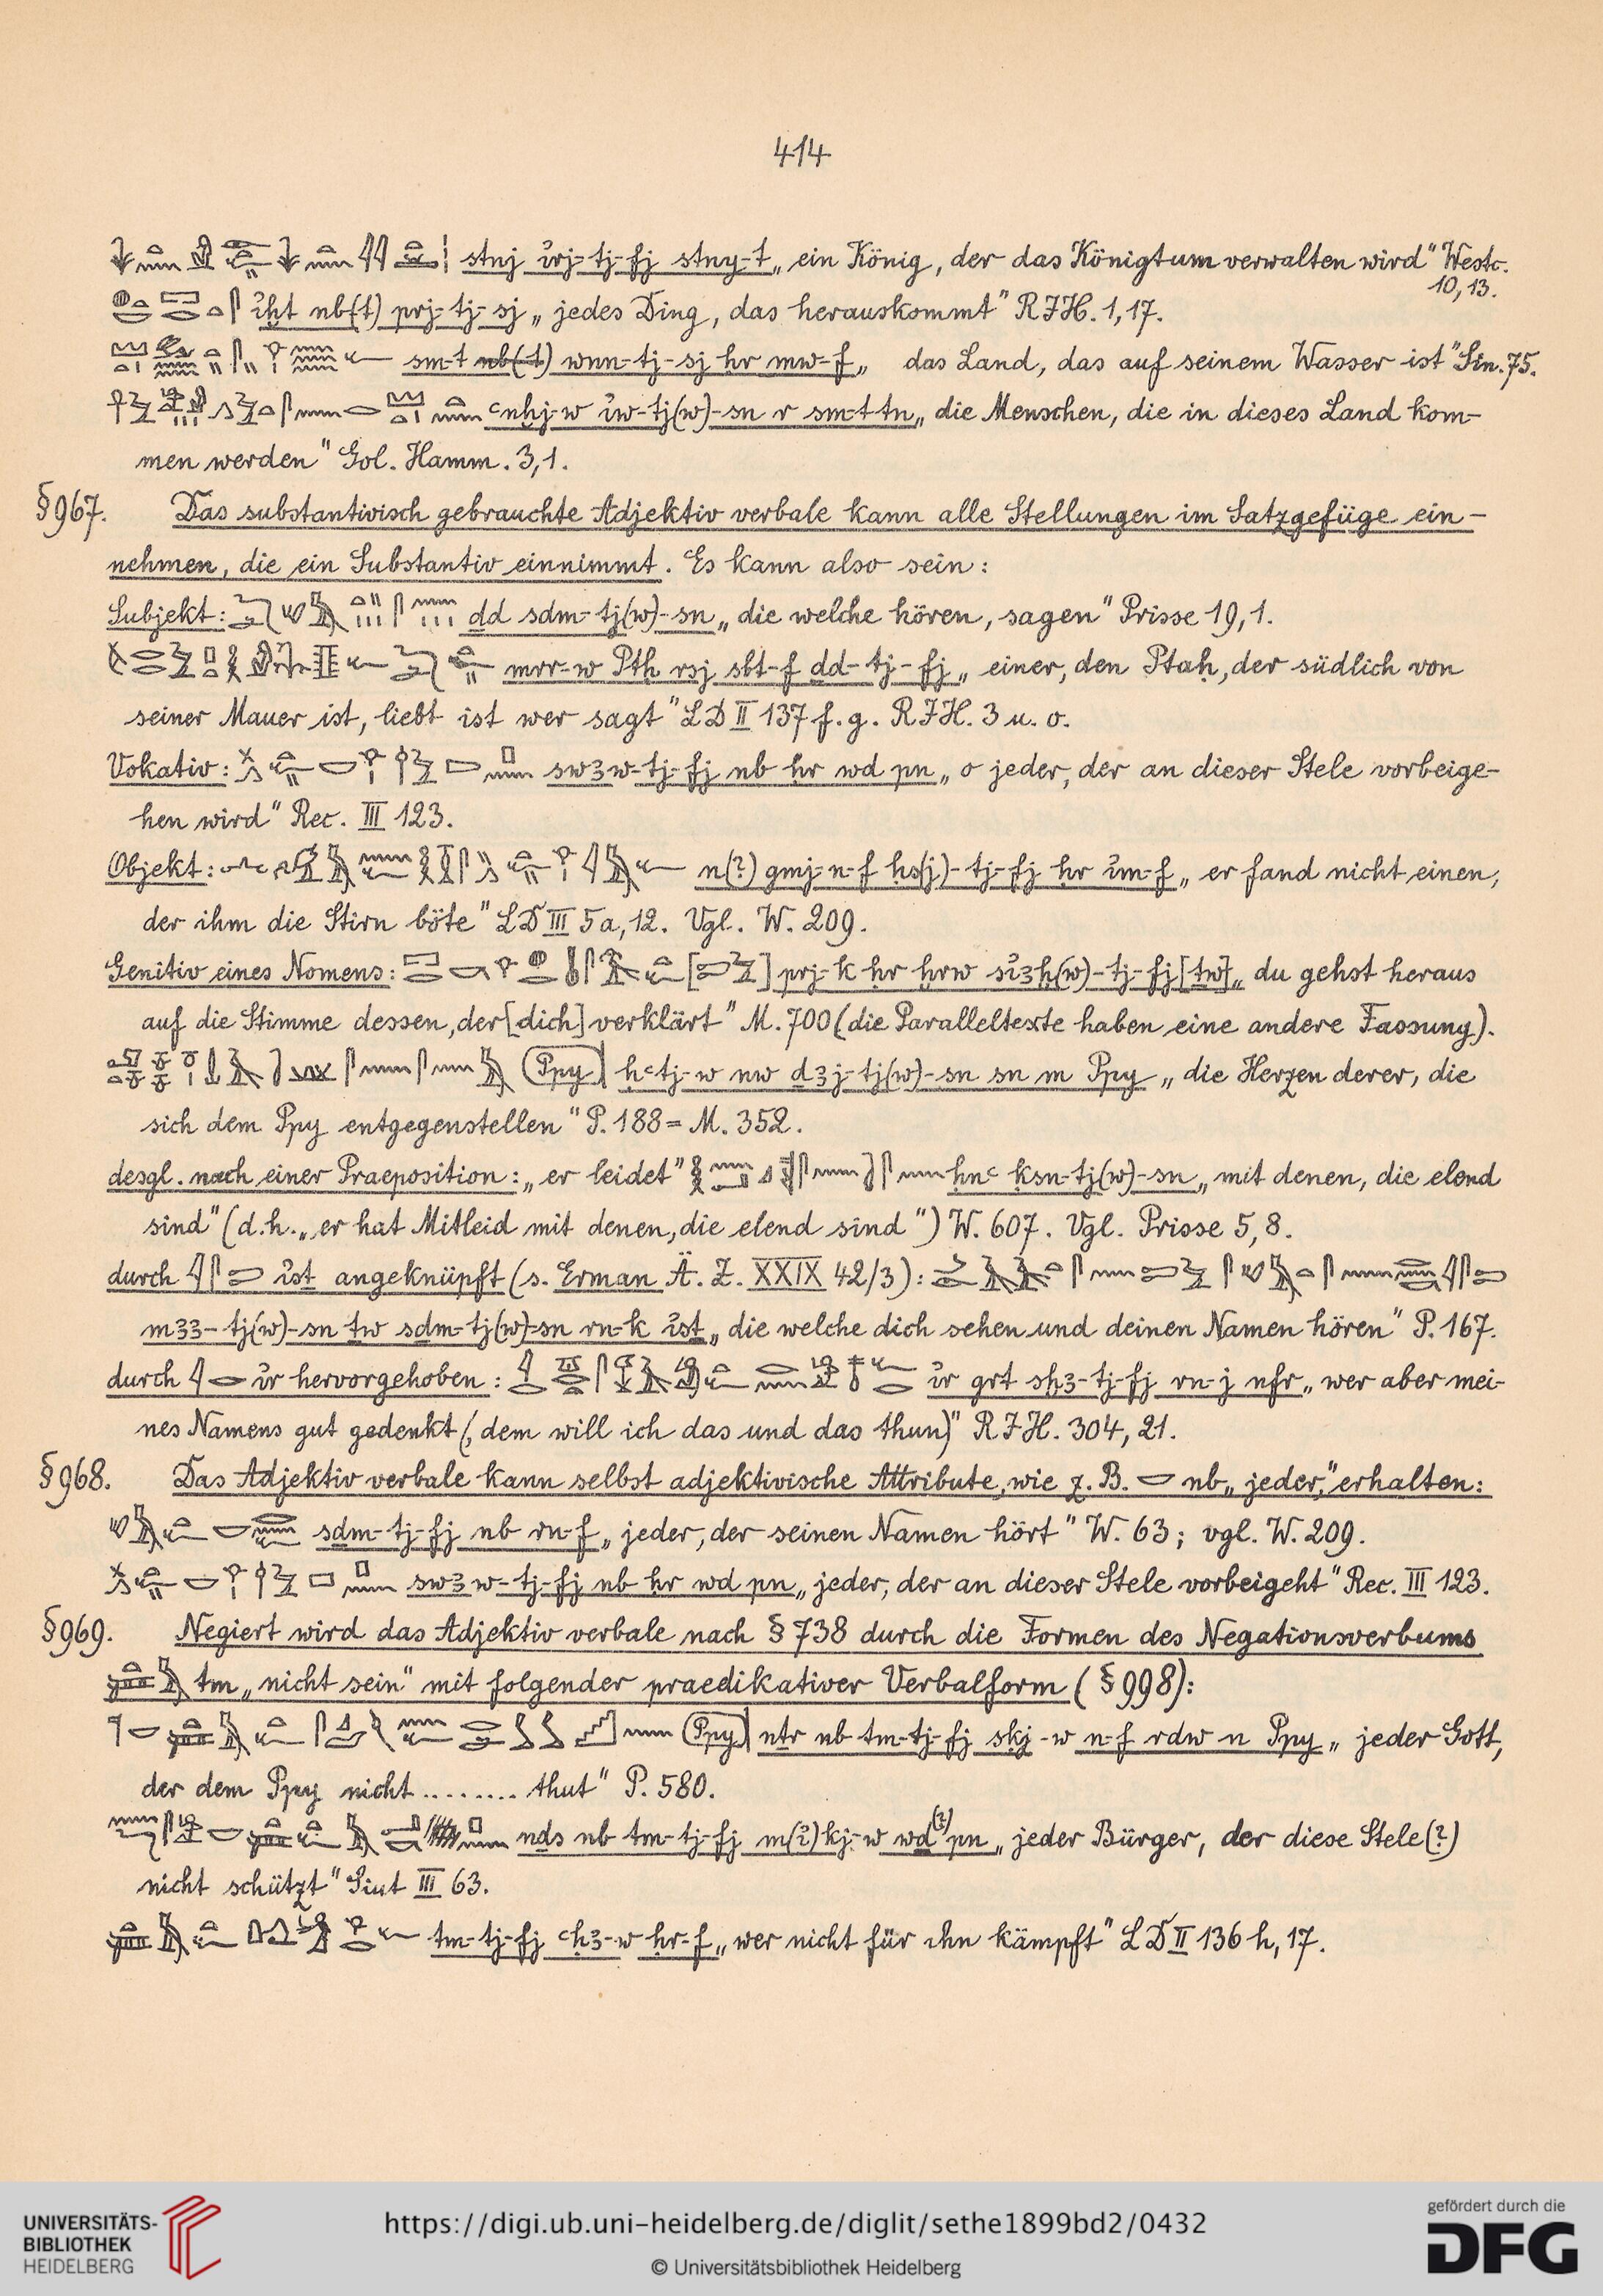 414
stnj ỉrj-tj-fj stny-t „ein König, der das Königtum verwalten wird“ Westc. 10,13.
ỉḫt nb(t) prj-tj-sj „jedes Ding, das herauskommt“ R I H. 1,17.
smt wnn-tj-sj ḥr mw-f „das Land, das auf seinem Wasser ist“ Sin. 75.
ꜥnḫj-w ỉw-tj(w)-sn r smt tn „die Menschen, die in dieses Land kom-
men werden“ Gol. Hamm. 3,1.
§967. Das substantivisch gebrauchte Adjektiv verbale kann alle Stellungen im Satzgefüge ein-
nehmen, die ein Substantiv einnimmt. Es kann also sein:
Subjekt: ḏd sḏm-tj(w)-sn „die welche hören, sagen“ Prisse 19,1.
mrr-w Ptḥ rsj sbt-f ḏd-tj-fj „einer, den Ptaḥ, der südlich von
seiner Mauer ist, liebt ist wer sagt“ LD II 137 f. g. R I H. 3 u. o.
Vokativ: swꜣw-tj-fj nb ḥr wḏ pn „o jeder, der an dieser Stele vorbeige-
hen wird“ Rec. III 123.
Objekt: n(?) gmj-n-f ḥs(j)-tj-fj ḥr ỉm-f „er fand nicht einen,
der ihm die Stirn böte“ LD III 5a,12. Vgl. W. 209.
Genitiv eines Nomens: prj-k ḥr ḫrw sỉꜣḫ(w)-tj-fj [ṯw] „du gehst heraus
auf die Stimme dessen, der [dich] verklärt“ M. 700 (die Paralleltexte haben eine andere Fassung).
ḥꜥtj-w nw ḏꜣj-tj(w)-sn sn m Ppy „die Herzen derer, die
sich dem Ppy entgegenstellen“ P. 188 = M. 352.
desgl. nach einer Praeposition: „er leidet“ ḥnꜥ ksn-tj(w)-sn „mit denen, die elend
sind“ (d.h. „er hat Mitleid mit denen, die elend sind“) W. 607. Vgl. Prisse 5,8.
durch ỉsṯ angeknüpft (s. Erman Ä. Z. XXIX 42/3):
mꜣꜣ-tj(w)-sn ṯw sḏm-tj(w)-sn rn-k ỉsṯ „die welche dich sehen und deinen Namen hören“ P. 167.
durch ỉr hervorgehoben: ỉr grt sḫꜣ-tj-fj rn-j nfr „wer aber mei-
nes Namens gut gedenkt (, dem will ich das und das thun)“ R I H. 304, 21.
§968. Das Adjektiv verbale kann selbst adjektivische Attribute, wie z. B. nb „jeder,“ erhalten:
sḏm-tj-fj nb rn-f „jeder, der seinen Namen hört“ W. 63; vgl. W. 209.
swꜣw-tj-fj nb ḥr wḏ pn „jeder, der an dieser Stele vorbeigeht“ Rec. III 123.
§969. Negiert wird das Adjektiv verbale nach § 738 durch die Formen des Negationsverbums
tm „nicht sein“ mit folgender praedikativer Verbalform (§998):
nṯr nb tm-tj-fj skj-w n-f rdw n Ppy „jeder Gott,
der dem Ppy nicht ......... thut“ P. 580.
nḏs nb tm-tj-fj m(?)kj-w wḏ(?) pn „jeder Bürger, der diese Stele(?)
nicht schützt“ Siut III 63.
tm-tj-fj ꜥḥꜣ-w ḥr-f „wer nicht für ihn kämpft“ LD II 136 h, 17.
UNIVERSITÄTS-
BIBLIOTHEK
HEIDELBERG
https://digi.ub.uni-heidelberg.de/diglit/sethe1899bd2/0432
© Universitätsbibliothek Heidelberg
gefördert durch die
DFG